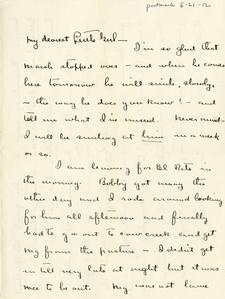 postmark 5-21-12
My dearest Little Girl—
I'm so glad that
Marsh stopped over - and when he comes
here tomorrow he will smile, slowly,
- the way he does you know! - and
tell me what I've missed. Never mind -
I will be smiling at him in a week
or so.
I am leaving for El Reto in
the morning. Bobby got away the
other day and I rode around looking
for him all afternoon and finally
had to go out to cow creek and get
my from the pasture - I didn't get
in till very late at night but it was
nice to be out. My men not have